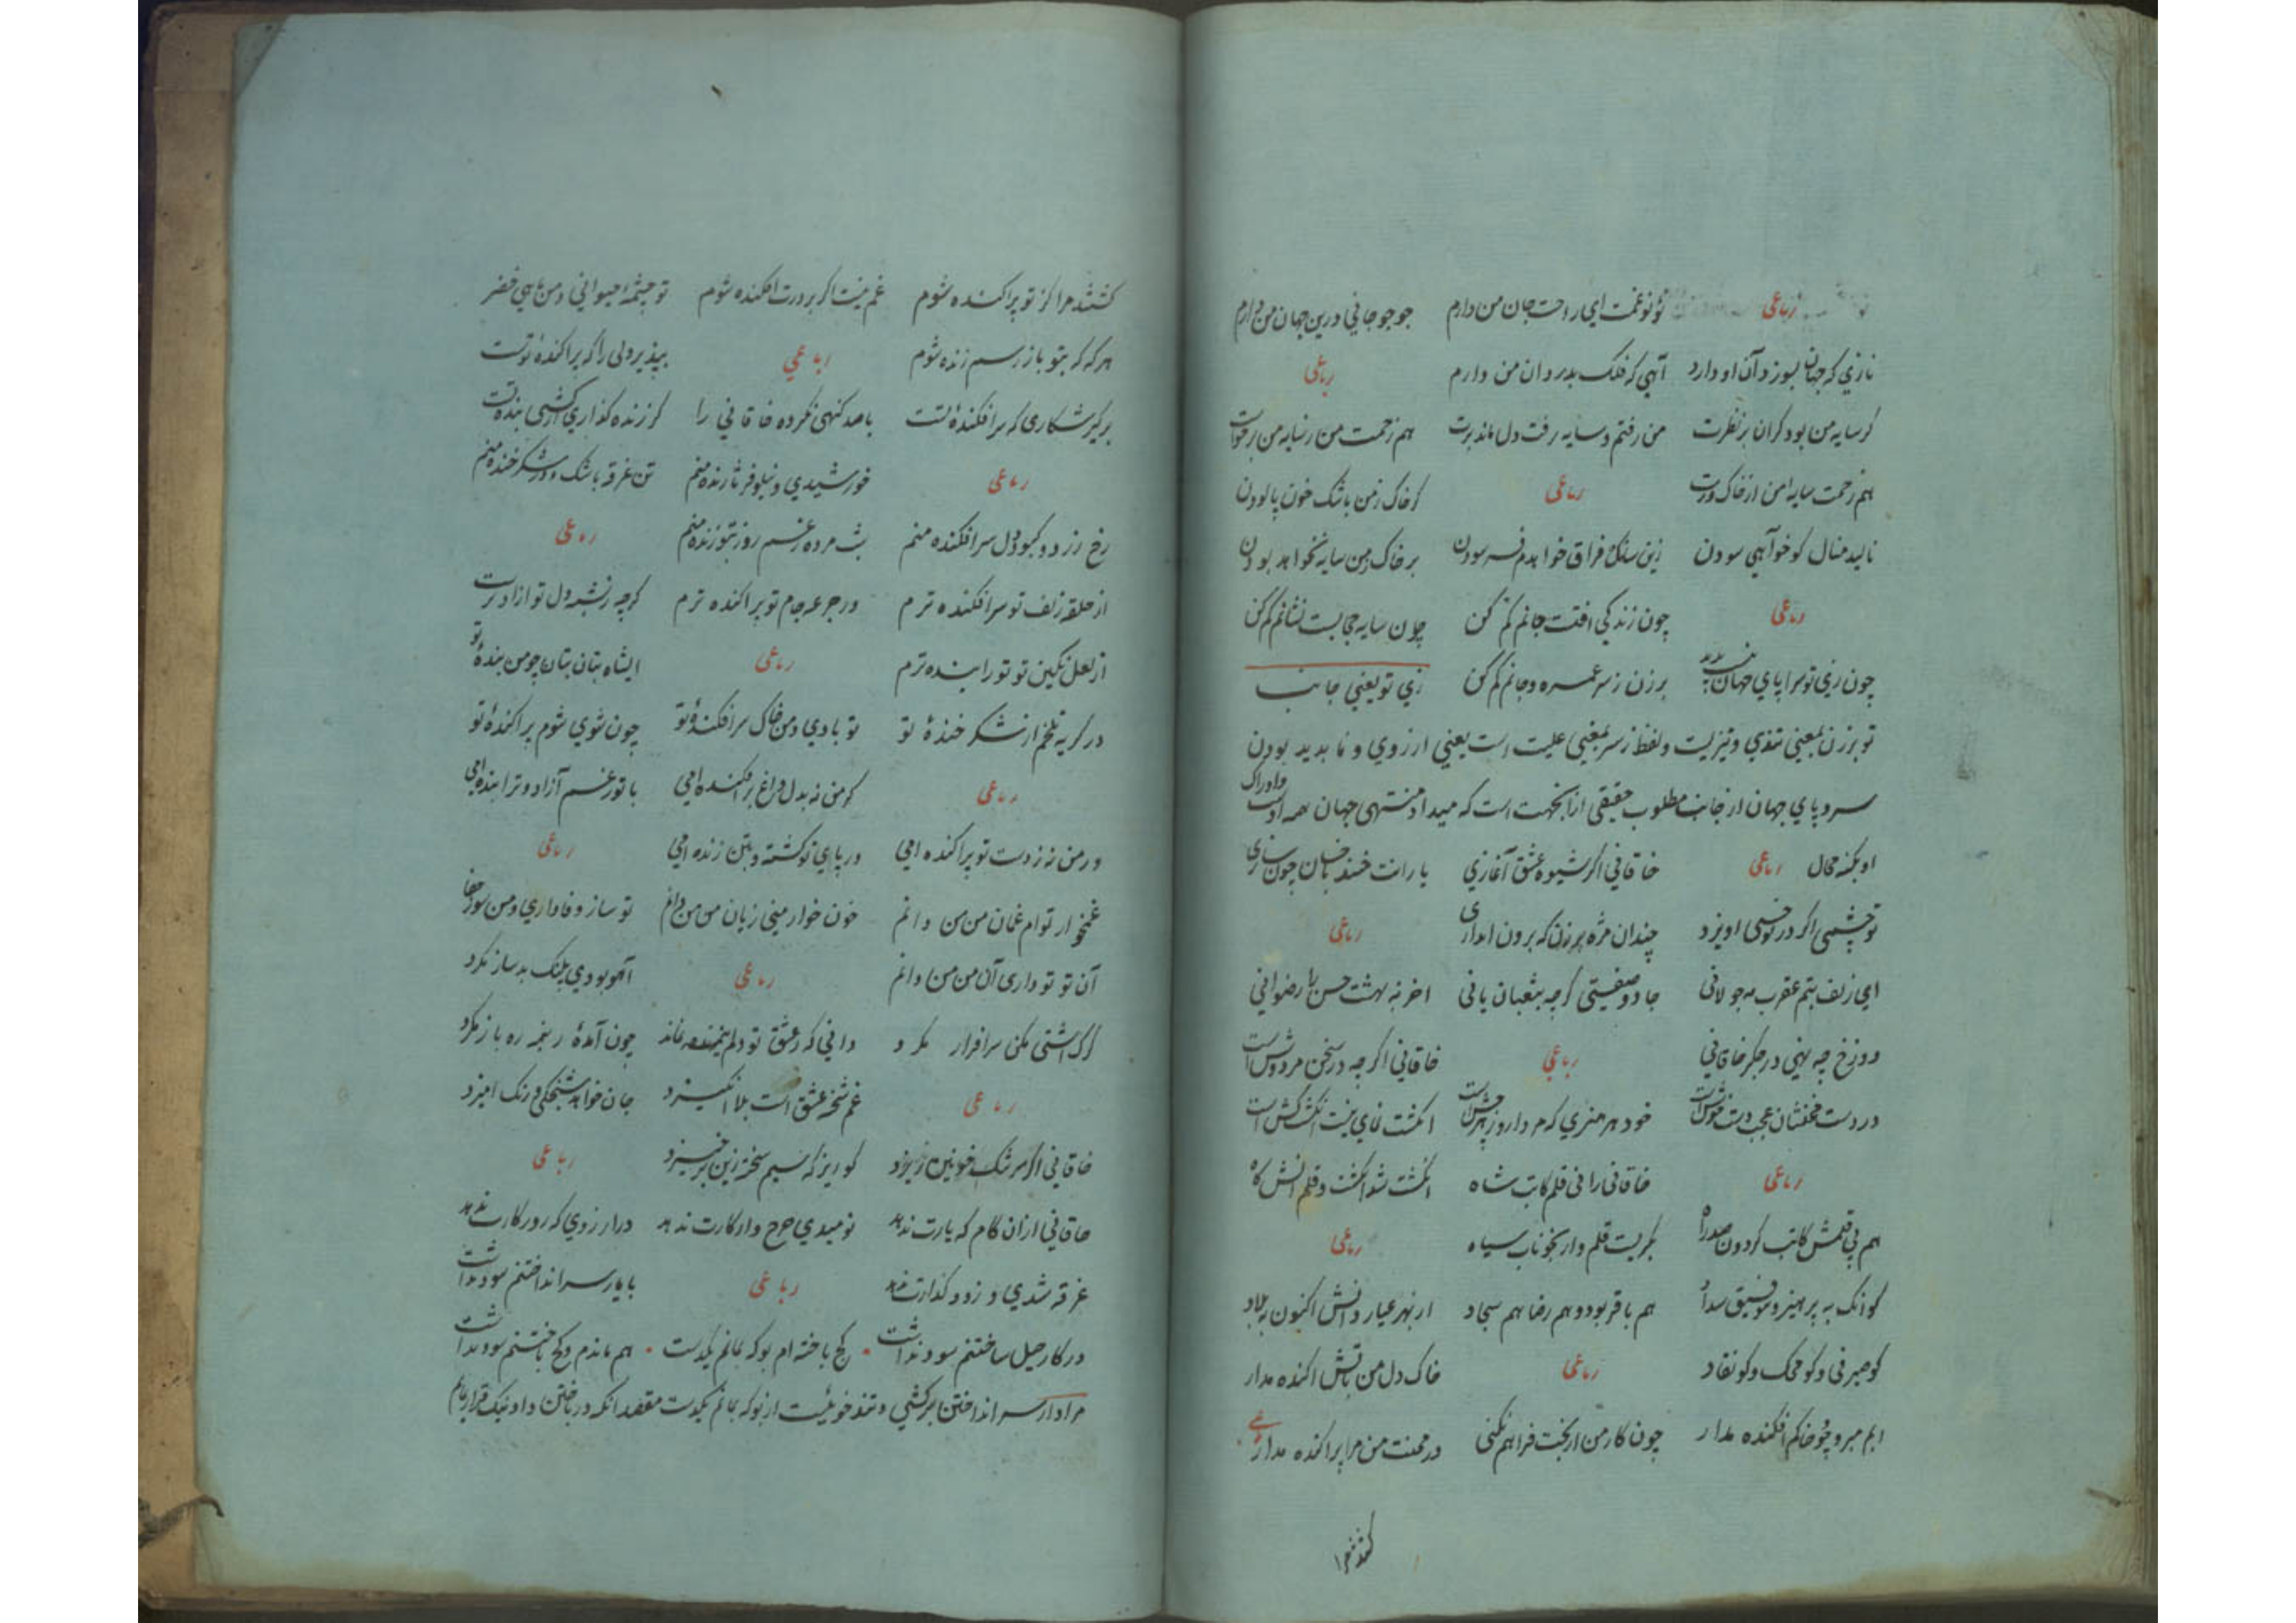 رباعی نو نو غمت ای راحت جان من دارم جو جو جانی درین جهان من دارم
نازی که جهان بسوزد آن او دارد آهی که فلک بدرد آن من دارم رباعی
کر سایه من بود کران بر نظرت من رفتم و سایه رفت دل ماند برت هم زحمت من ز سایه من برخواست
هم زحمت سایه من از خاک درت رباعی کر خاک زمن باشک خون پالودن
نالید منال کو خواهی سودن زین سنک فراق خواهدم فرسودن بر خاک زمن سایه نخواهد بودن
رباعی چون زندکی افتت جانم کم کن چون سایه حجابست نشانم کم کن
چون زی تو سرا پای جهان برزن ز سر غمزه و جانم کم کن زی تو یعنی جانب
تو برزن بمعنی تندی و تیزیست و لفظ ز سر بمعنی علیت است یعنی از روی و نا بدید بودن
سر و پای جهان از جانب مطلوب حقیقی ازانجهت است که مبدا و منتهی جهان همه اوست و ادراک
او بکنه محال رباعی خاقانی اکر شیوه عشق آغازی یارانت خسند با خسان چون سازی
تو چشمی اکر در تو خسی اویزد چندان مژه بر زن که برون اندازی رباعی
ای زلف بتم عقرب مه جولانی جادو صفتی کرچه بثعبان یانی اخر نه بهشت حسن را رضوانی
دوزخ چه نهی در جکر خاقانی رباعی خاقانی اکرچه در سخن مردوش است
در دست مخنثان عجب دستخوش است خود هر هنری که مرد ازو زهرچش است انکشت نمای نیست انکشت کش است
رباعی خاقانی را فی قلم کاتب شاه انکشت شد انکشت و قلم اتش کاه
هم بی قلمش کاتب کردون صد راه بکریست قلم وار بخوناب سیاه رباعی
کو انک به پرهیز و توفیق و سداد هم باقر بود و هم رضا هم سجاد از بهر عیار دانش اکنون به بلاد
کو صیرفی و کو محک و کو نقاد رباعی خاک دل من باتش اکنده مدار
ابم مبر و چو خاکم افکنده مدار چون کار من از بخت فراهم نکنی در محنت من مرا پراکنده مدار رباعی
کشتند مرا
کشتند مرا کز تو پراکنده شوم غم نیست اکر بر درت افکنده شوم تو چشمه حیوانی و من ماهی خضر
هر که که بتو باز رسم زنده شوم رباعی بپذیر دلی را که پراکنده تست
برکیر شکاری که سرافکنده تست با صد کنهی نکرده خاقانی را کر زنده کذاری ار کشی بنده تست
رباعی خورشیدی و نیلوفر نازنده منم تن غرقه باشک و در شکر خنده منم
رخ زرد و کبود دل سرافکنده منم شب مرده ز غم روز بتو زنده منم رباعی
از حلقه زلف تو سرافکنده ترم در جرعه جام تو پراکنده ترم کرچه ز شبه دل تو ازاد ترست
از لعل نکین تو تو را بنده ترم رباعی ایشاه بتان بتان چو من بنده تو
در کریه تلخم از شکر خنده تو تو بادی و من خاک سرافکنده تو چون شوی شوم پراکنده تو
رباعی کر من نه بدل داغ برافکنده امی با تو ز غم آزاد و ترا بنده امی
ور من نه ز دست تو پراکنده امی در پای تو کشته و بتن زنده امی رباعی
غمخوار توام غمان من من دانم خون خوار منی زیان من من دانم تو ساز وفا داری و من سوز جفا
آن تو تو داری آن من من دانم رباعی آهو بودی پلنک بد ساز مکرد
کرک اشتی مکن سرافراز مکرد دانی که ز عشق تو دلم نماند چون آمده رنجه ره باز مکرد
رباعی غم شحنه عشق است بلا انکیزد جان خواهد شحنکی و رنک امیزد
خاقانی اکر سرشک خونین ریزد کو ریز که سیم شحنه زین برخیزد رباعی
خاقانی ازان کام که یارت ندهد نومیدی چرخ وار کارت ندهد در ارزوی که روزکارت ندهد
غرقه شدی و زود کذارت ندهد رباعی با یار سر انداختنم سود نداشت
در کار حیل ساختنم سود نداشت کج باخته ام بو که بمانم یکدست هم ماندم و کج باختنم سود نداشت
مراد از سر انداختن سرکشی و تند خوئیست از بو که بمانم یکدست مقصد انکه در باختن داو نیک قرار یابم